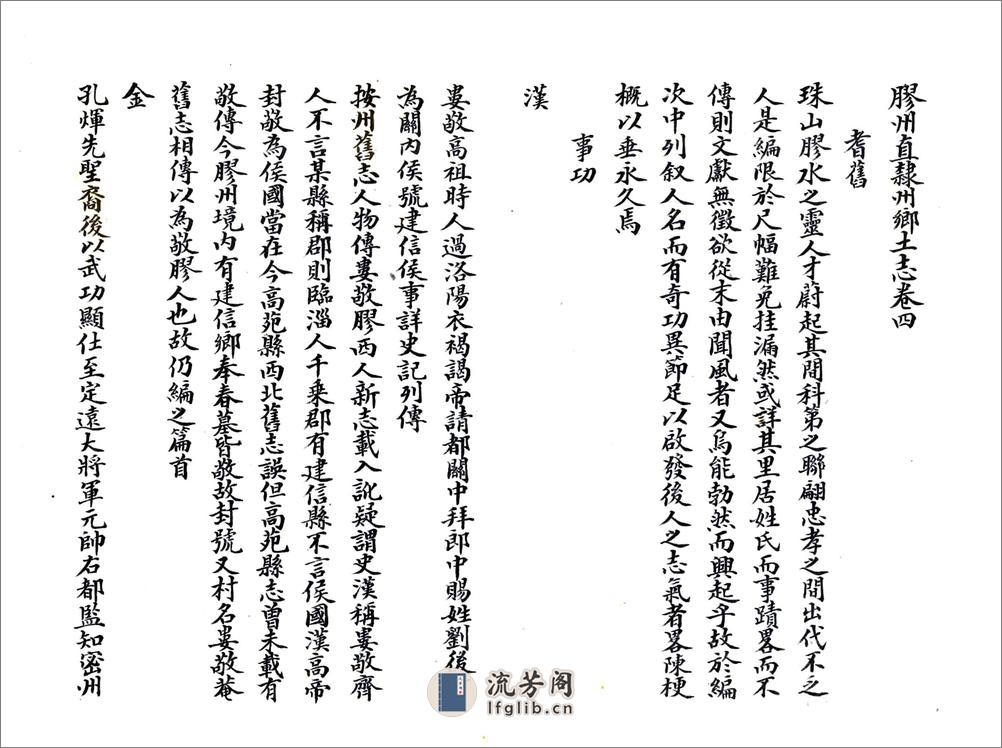 膠州直隸州鄉土志卷四
耆舊
珠山膠水之靈人才蔚起其間科第之聯翩忠孝之間出代不乏
人是編限於尺幅難免挂漏然或詳其里居姓氏而事蹟畧而不
傳則文獻無徵欲從末由聞風者又烏能勃然而興起乎故於編
次中列叙人名而有奇功異節足以啟發後人之志氣者畧陳梗
概以垂永久焉
事功
漢
婁敬高祖時人過洛陽衣褐謁帝請都關中拜郎中賜姓劉後
為關內侯號建信侯事詳史記列傳
按州舊志人物傳婁敬膠西人新志載入訛疑謂史漢稱婁敬齊
人不言某縣稱郡則臨淄人千乘郡有建信縣不言侯國漢高帝
封敬為侯國當在今高苑縣西北舊志誤但高苑縣志曾未載有
敬傳今膠州境內有建信鄉奉春墓皆敬故封號又村名婁敬菴
舊志相傳以為敬膠人也故仍編之篇首
金
孔煇先聖裔後以武功顯仕至定遠大將軍元帥右都監知密州
流芳阁
lfglib.cn